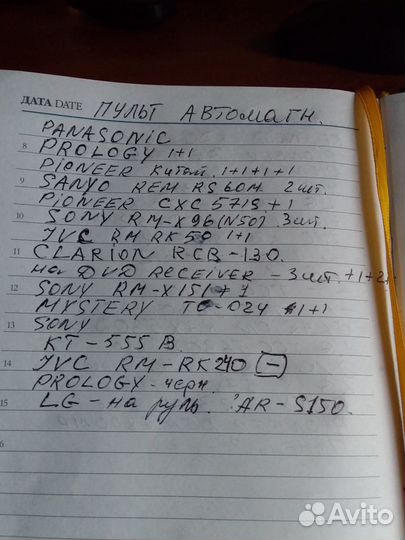 ДАТА DATE ПУЛЬТ АВТОМАГН.
PANASONIC
8 PROLOGY 1+1
PIONEER китай. 1+1+1+1
9 SANYO REM RS60M. 2шт.
PIONEER CXC 5719 +1
10 SONY RM-X96(N50) 3шт.
JVC RM RK50 1+1
11 CLARION RCB-130.
на DVD RECEIVER - 3шт. +1+2+
12 SONY RM-X151 + 1
MYSTERY -024 1+1
13 SONY
KT-555 B
14 JVC RM-RK240 -
PROLOGY - черн.
15 LG - на руль. AR-S150.
Avito